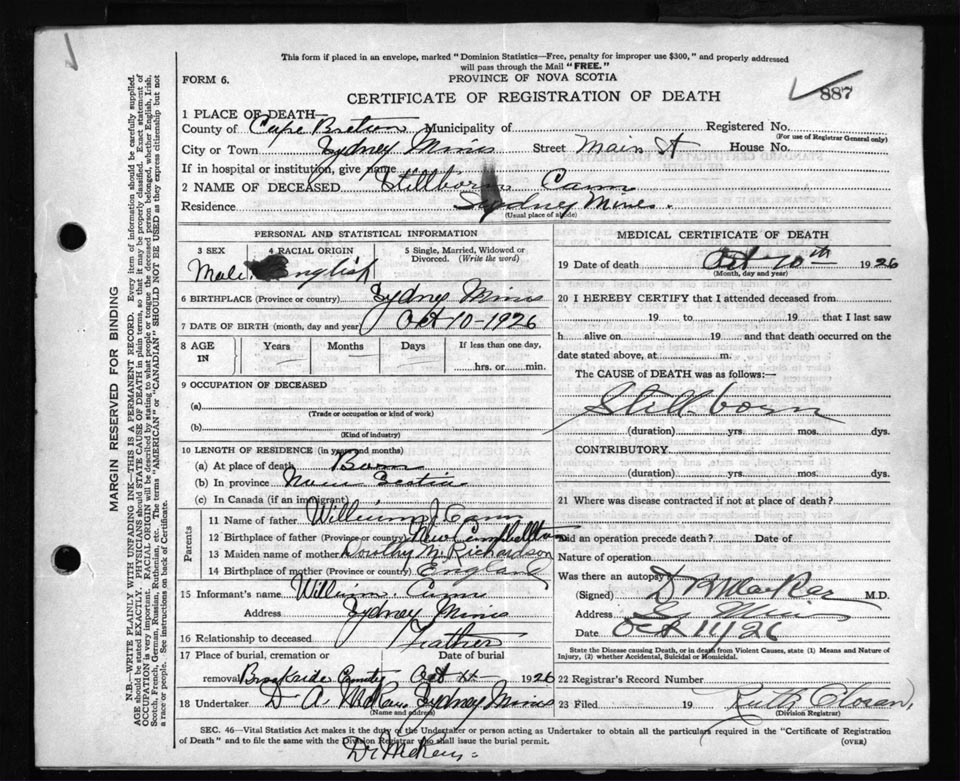 This form if placed in an envelope, marked "Dominion Statistics—Free, penalty for improper use $300," and properly addressed
will pass through the Mail "FREE."
FORM 6.
PROVINCE OF NOVA SCOTIA
CERTIFICATE OF REGISTRATION OF DEATH
887
1 PLACE OF DEATH—
County of Cape Breton Municipality of
Registered No.
(For use of Registrar General only)
City or Town Sydney Mines Street Main St House No.
If in hospital or institution, give name
2 NAME OF DECEASED Stillborn Cann
Residence Sydney Mines.
(Usual place of abode)
PERSONAL AND STATISTICAL INFORMATION
3 SEX
Male
4 RACIAL ORIGIN
English
5 Single, Married, Widowed or
Divorced. (Write the word)
6 BIRTHPLACE (Province or country) Sydney Mines
7 DATE OF BIRTH (month, day and year) Oct 10-1926
8 AGE
IN
Years
Months
Days
If less than one day,
hrs. or min.
9 OCCUPATION OF DECEASED
(a)
(Trade or occupation or kind of work)
(b)
(Kind of industry)
10 LENGTH OF RESIDENCE (in years and months)
(a) At place of death Born
(b) In province Nova Scotia
(c) In Canada (if an immigrant)
Parents
11 Name of father William J. Cann
12 Birthplace of father (Province or country) New Campbellton
13 Maiden name of mother Dorothy M. Richardson
14 Birthplace of mother (Province or country) England
15 Informant's name William Cann
Address Sydney Mines
16 Relationship to deceased Father
17 Place of burial, cremation or
removal Brookside Cemetry
Date of burial
Oct 1926
18 Undertaker D A. McRae, Sydney Mines
(Name and address)
MEDICAL CERTIFICATE OF DEATH
19 Date of death Oct 10th 1926
(Month, day and year)
20 I HEREBY CERTIFY that I attended deceased from
19 to 19 that I last saw
h alive on 19 and that death occurred on the
date stated above, at m.
The CAUSE of DEATH was as follows:—
Still-born
(duration) yrs. mos. dys.
CONTRIBUTORY.
(duration) yrs. mos. dys.
21 Where was disease contracted if not at place of death?
Did an operation precede death? Date of
Nature of operation
Was there an autopsy
(Signed) M.D.
Address
Date Oct 11/26
State the Disease causing Death, or in death from Violent Causes, state (1) Means and Nature of
Injury, (2) whether Accidental, Suicidal or Homicidal.
22 Registrar's Record Number
23 Filed 19 Ruth
(Division Registrar)
SEC. 46—Vital Statistics Act makes it the duty of the Undertaker or person acting as Undertaker to obtain all the particulars required in the "Certificate of Registration
of Death" and to file the same with the Division Registrar who shall issue the burial permit.
(OVER)
MARGIN RESERVED FOR BINDING
N.B.—WRITE PLAINLY WITH UNFADING INK—THIS IS A PERMANENT RECORD. Every item of information should be carefully supplied.
AGE should be stated EXACTLY. PHYSICIANS should STATE CAUSE OF DEATH in plain terms, so that it may be properly classified. Exact statement of
OCCUPATION is very important. RACIAL ORIGIN will be described by stating to what people or tongue the deceased person belonged, whether English, Irish,
Scotch, French, German, Russian, Ruthenian, etc. The terms "AMERICAN" or "CANADIAN" SHOULD NOT BE USED as they express citizenship but not
a race or people. See instructions on back of Certificate.